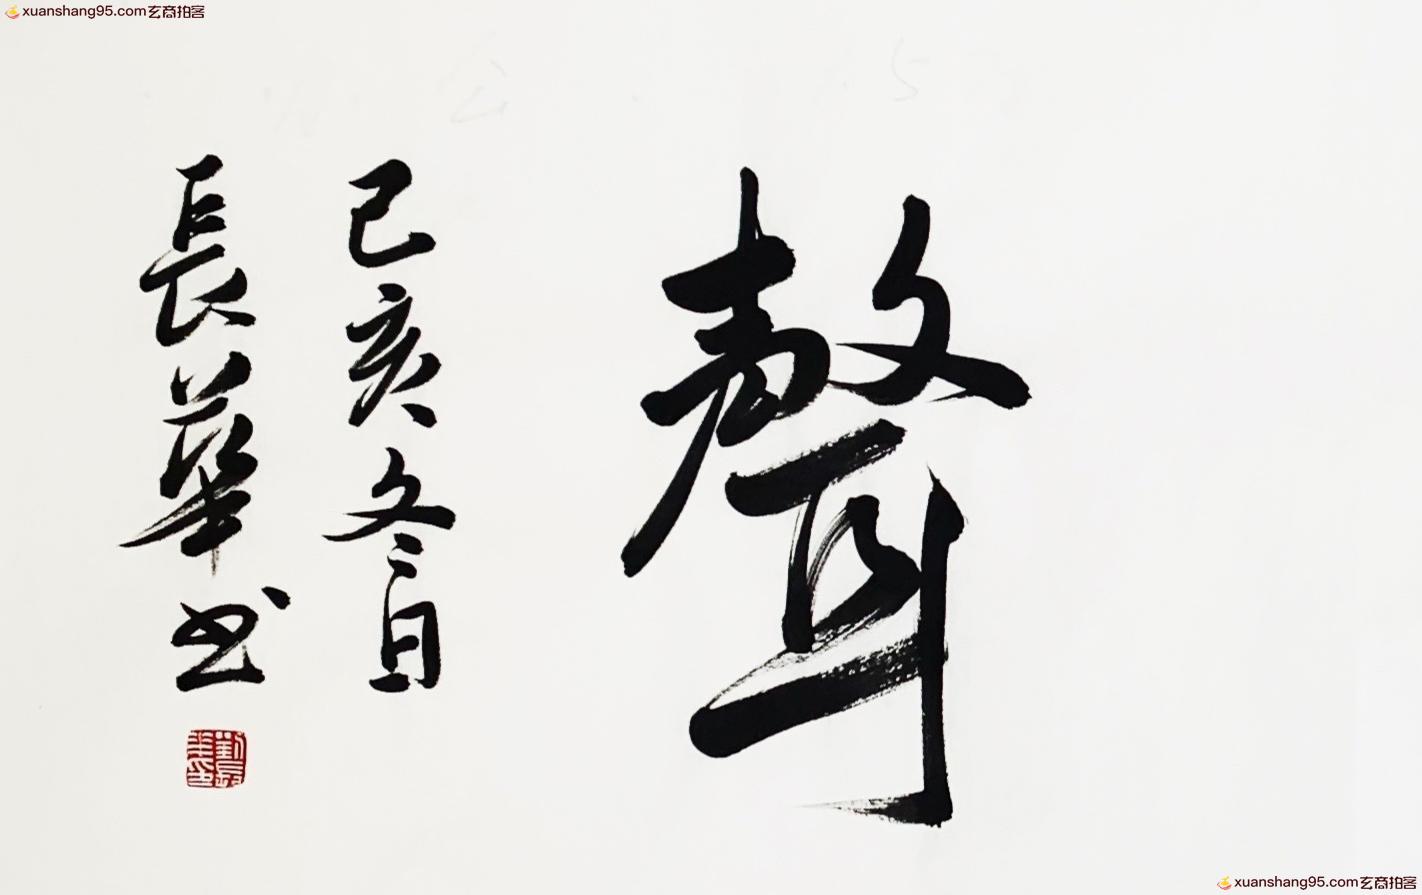 xuanshang95.com玄商拍客
聲
己亥冬日
長華书
xuanshang95.com玄商拍客